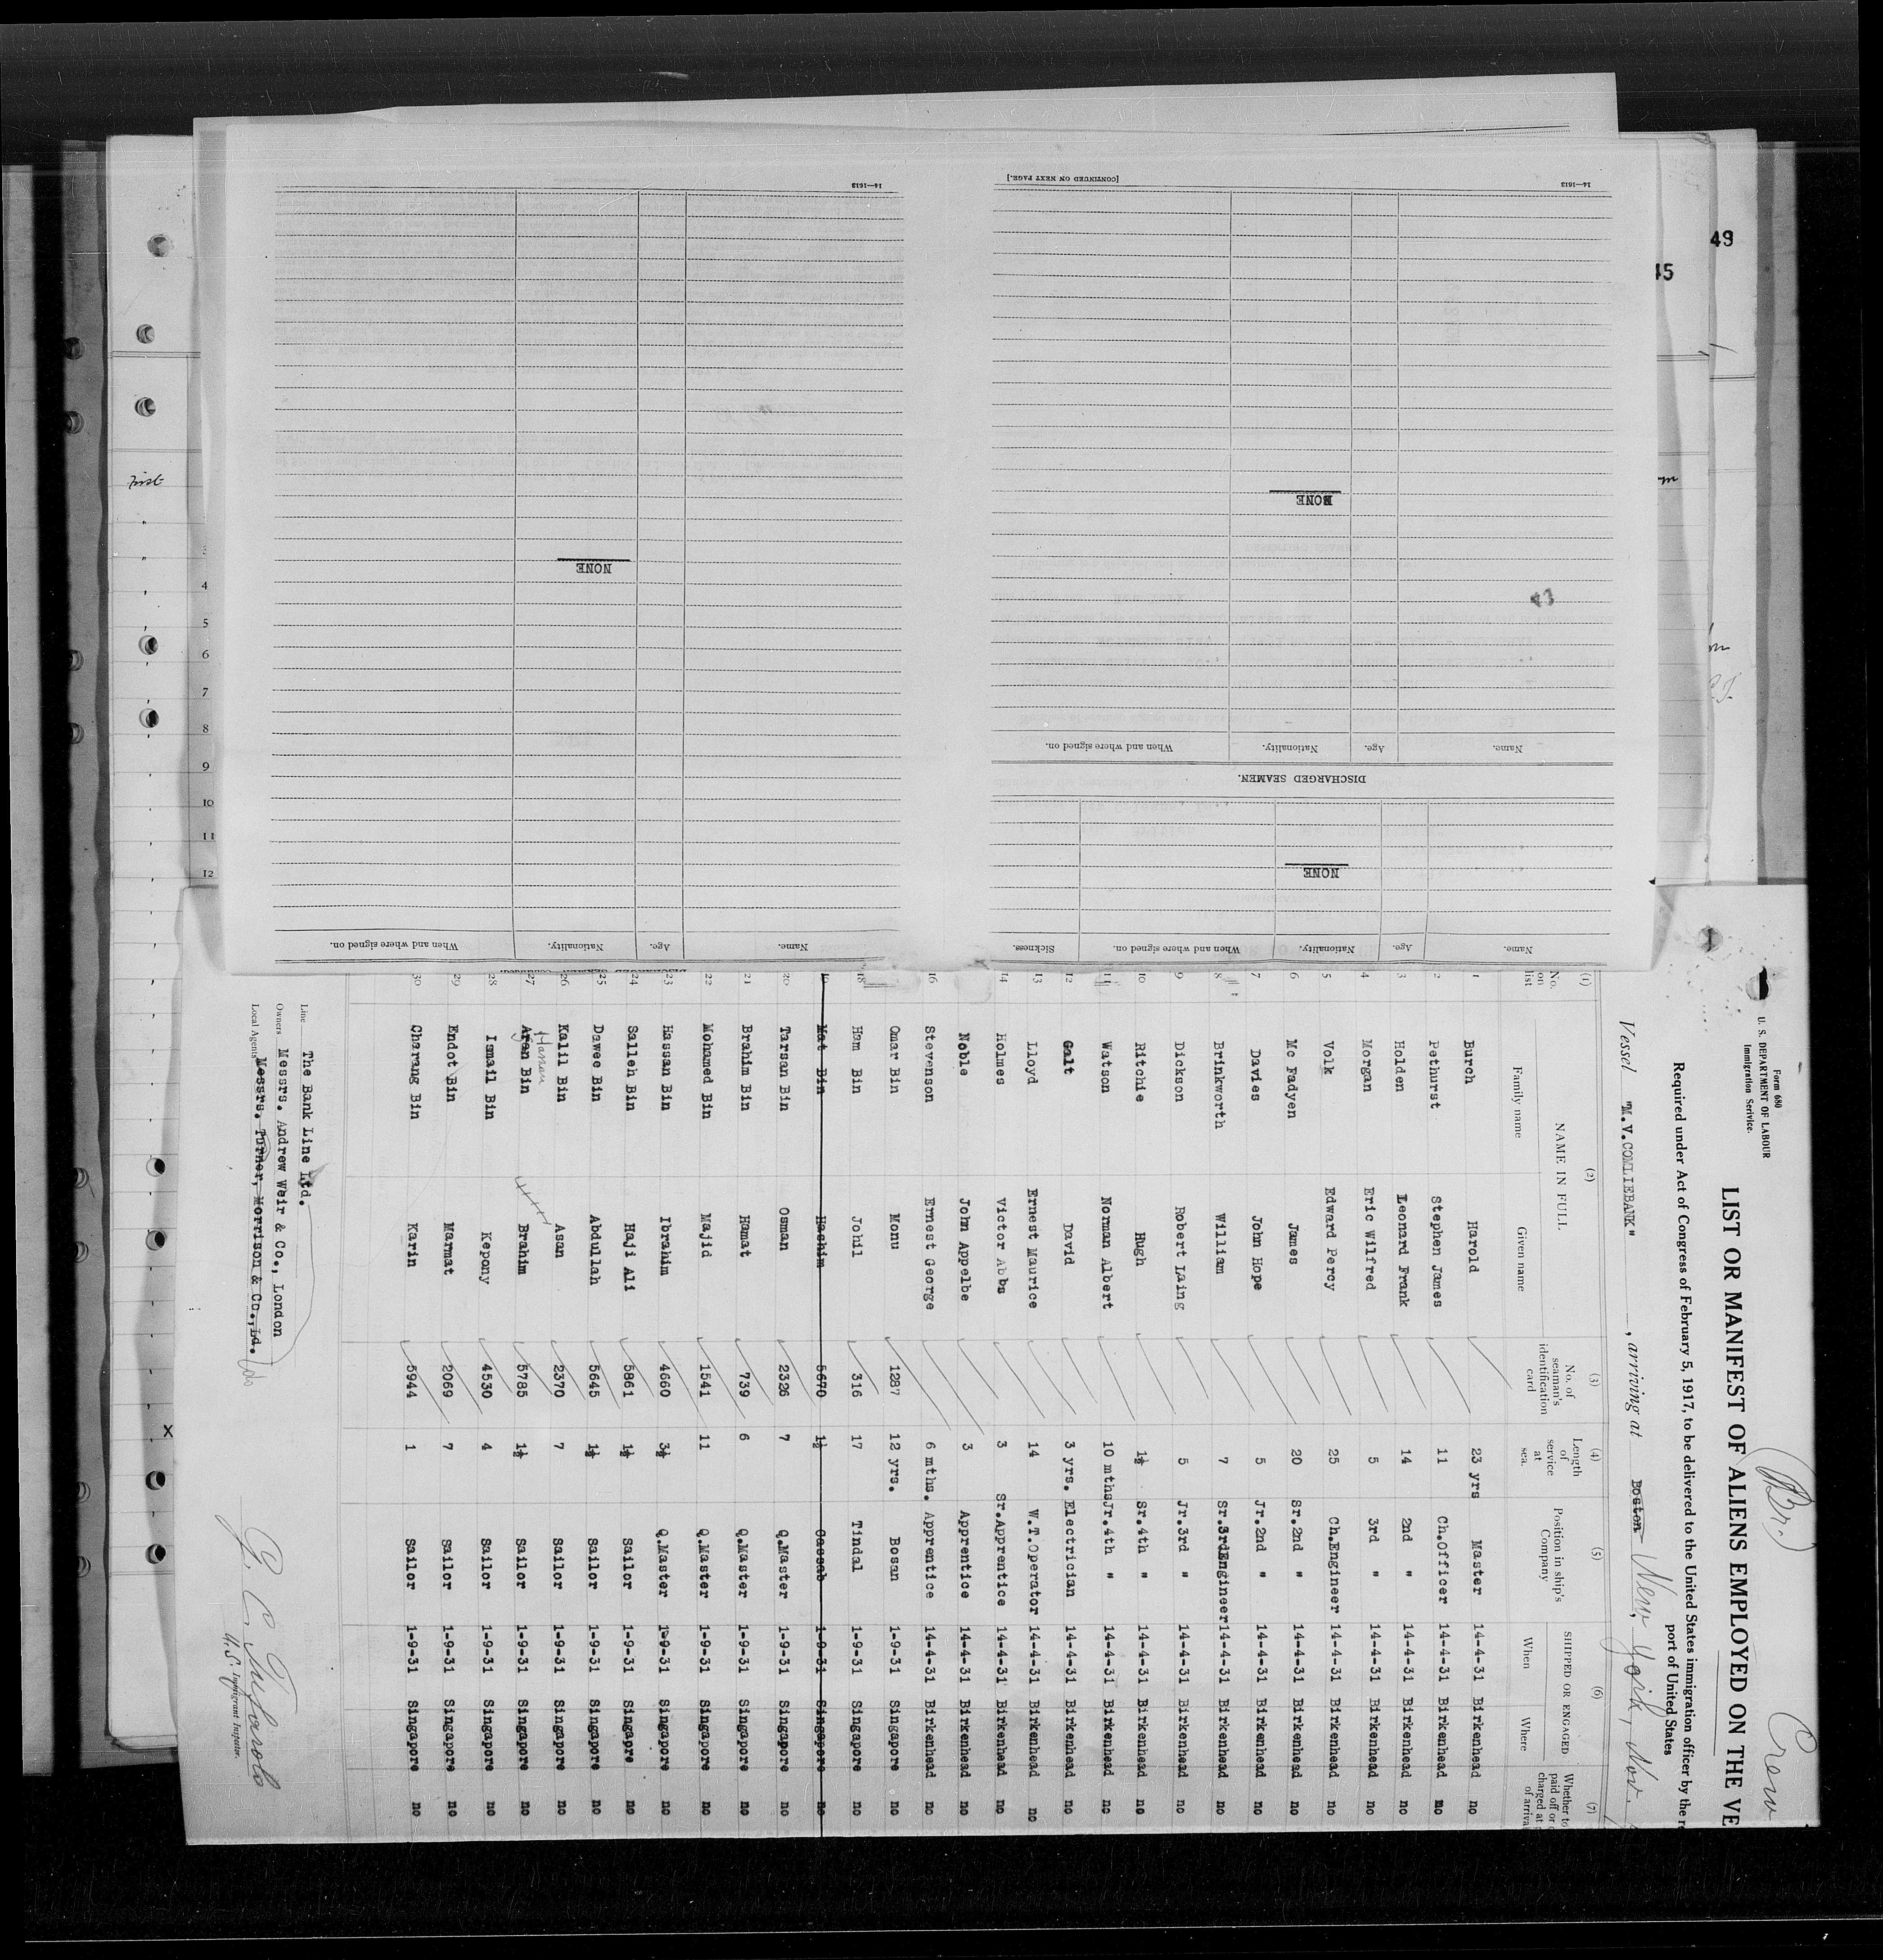 Form 680
U. S. DEPARTMENT OF LABOUR
Immigration Serivice.
(Br.)
Crew
LIST OR MANIFEST OF ALIENS EMPLOYED ON THE VE
Required under Act of Congress of February 5, 1917, to be delivered to the United States immigration officer by the re
port of United States
Vessel "M.V.COMLIEBANK" , arriving at Boston New York, Nov.
(1) (2) (3) (4) (5) (6) (7)
No. on list NAME IN FULL Family name Given name No. of seaman's identification card Length of service at sea. Position in ship's Company SHIPPED OR ENGAGED When Where Whether to paid off or charged at of arrival
1 Burch Harold 23 yrs Master 14-4-31 Birkenhead no
2 Pethurst Stephen James 11 Ch.Officer 14-4-31 Birkenhead no
3 Holden Leonard Frank 14 2nd " 14-4-31 Birkenhead no
4 Morgan Eric Wilfred 5 3rd " 14-4-31 Birkenhead no
5 Volk Edward Percy 25 Ch.Engineer 14-4-31 Birkenhead no
6 Mc Fadyen James 20 Sr.2nd " 14-4-31 Birkenhead no
7 Davies John Hope 5 Jr.2nd " 14-4-31 Birkenhead no
8 Brinkworth William 7 Sr.3rdEngineer 14-4-31 Birkenhead no
9 Dickson Robert Laing 5 Jr.3rd " 14-4-31 Birkenhead no
10 Ritchie Hugh 1½ Sr.4th " 14-4-31 Birkenhead no
11 Watson Norman Albert 10 mths Jr.4th " 14-4-31 Birkenhead no
12 Galt David 3 yrs. Electrician 14-4-31 Birkenhead no
13 Lloyd Ernest Maurice 14 W.T.Operator 14-4-31 Birkenhead no
14 Holmes Victor Abbs 3 Sr.Apprentice 14-4-31 Birkenhead no
Noble John Appelbe 3 Apprentice 14-4-31 Birkenhead no
16 Stevenson Ernest George 6 mths. Apprentice 14-4-31 Birkenhead no
Omar Bin Monu 1287 12 yrs. Bosan 1-9-31 Singapore no
18 Ham Bin Johil 316 17 Tindal 1-9-31 Singapore no
19 Mat Bin Hashim 5670 1½ Cassab 1-9-31 Singapore no
20 Tarsan Bin Osman 2326 7 Q.Master 1-9-31 Singapore no
21 Brahim Bin Hamat 739 6 Q.Master 1-9-31 Singapore no
22 Mohamed Bin Majid 1541 11 Q.Master 1-9-31 Singapore no
23 Hassan Bin Ibrahim 4660 3½ Q.Master 1-9-31 Singapore no
24 Salleh Bin Haji Ali 5861 1½ Sailor 1-9-31 Singapre no
25 Dawee Bin Abdullah 5645 1½ Sailor 1-9-31 Singapore no
26 Kalil Bin Asan 2370 7 Sailor 1-9-31 Singapore no
27 Aren Bin Brahim 5785 1½ Sailor 1-9-31 Singapore no
28 Ismail Bin Kepony 4530 4 Sailor 1-9-31 Singapore no
29 Endot Bin Marmat 2069 7 Sailor 1-9-31 Singapore no
30 Charang Bin Karin 5944 1 Sailor 1-9-31 Singapore no
Line The Bank Line Ltd.
Owners Messrs. Andrew Weir & Co., London
Local Agents Messrs. Turner, Morrison & Co., Ld.
U.S. Immigrant Inspector.
Name. Age. Nationality. When and where signed on. Sickness.
NONE
DISCHARGED SEAMEN.
Name. Age. Nationality. When and where signed on.
NONE
43
14—1613 [CONTINUED ON NEXT PAGE.]
Name. Age. Nationality. When and where signed on.
NONE
14—1613
49
45
First
4
5
6
7
8
9
10
11
12
X